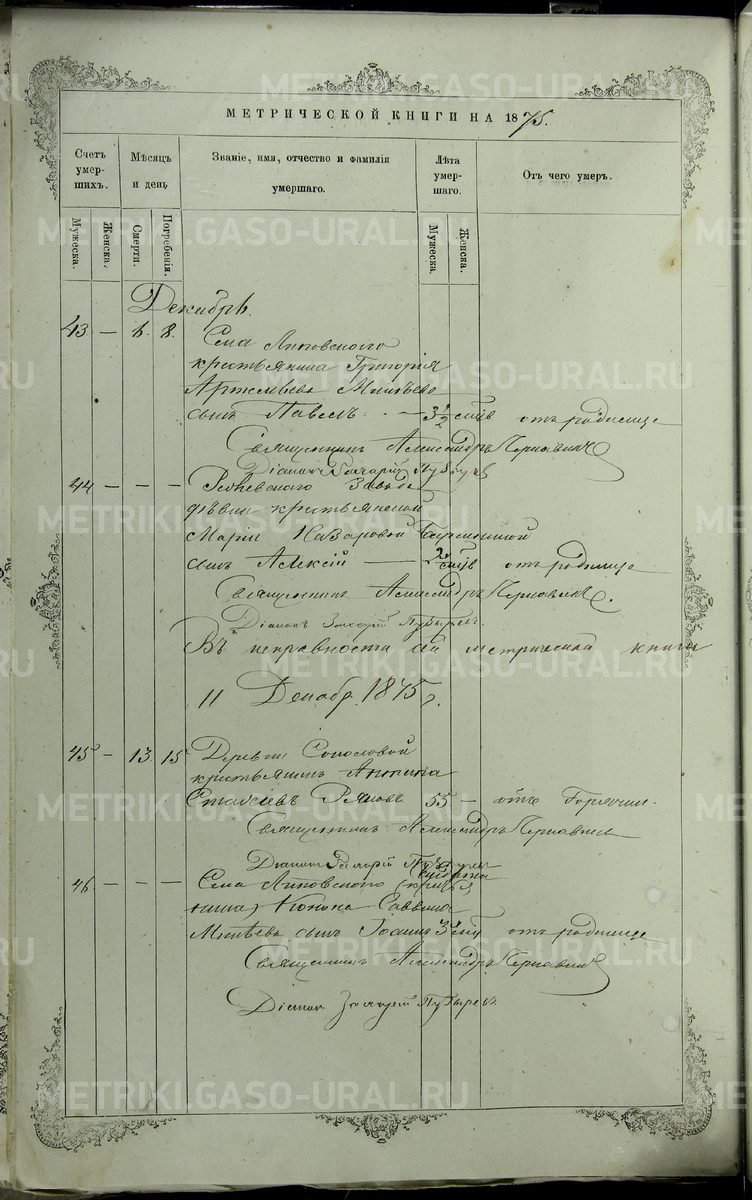 МЕТРИЧЕСКОЙ КНИГИ НА 1875.
Счетъ умерших. Мѣсяцъ и день Званіе, имя, отчество и фамилія умершаго. Лѣта умершаго. Отъ чего умеръ.
Мужеска. Женска. Смерти. Погребенія. Мужеска. Женска.
Декабрь.
43 — 6. 8. Села Липовского
крестьянина Григорія
Артемьева Минѣева
сынъ Павелъ. — 3 1/2 мѣсяц отъ родимца
Священникъ Александръ Чернавинъ
Діаконъ Захарій Пузырев
44 — — — Режевского Завода
дѣвки крестьянской
Маріи Назаровой
сынъ Алексій — 2 мѣсяц отъ родимца
Священникъ Александръ Чернавинъ.
Діаконъ Захарій Пузыревъ.
Въ исправности сей метрической книги
11 Декабр. 1875 г.
45 — 13. 15 Деревни Соколовой
крестьянинъ
55. — отъ Горячки.
Священникъ Александръ Чернавинъ
Діаконъ Захарій Пузырев
46 — — — Села Липовского
Конона Саввина
Минѣева сынъ Іоаннъ 3 отъ родимца
Священникъ Александръ Чернавинъ
Діакон Захарій Пузыревъ
METRIKI.GASO-URAL.RU